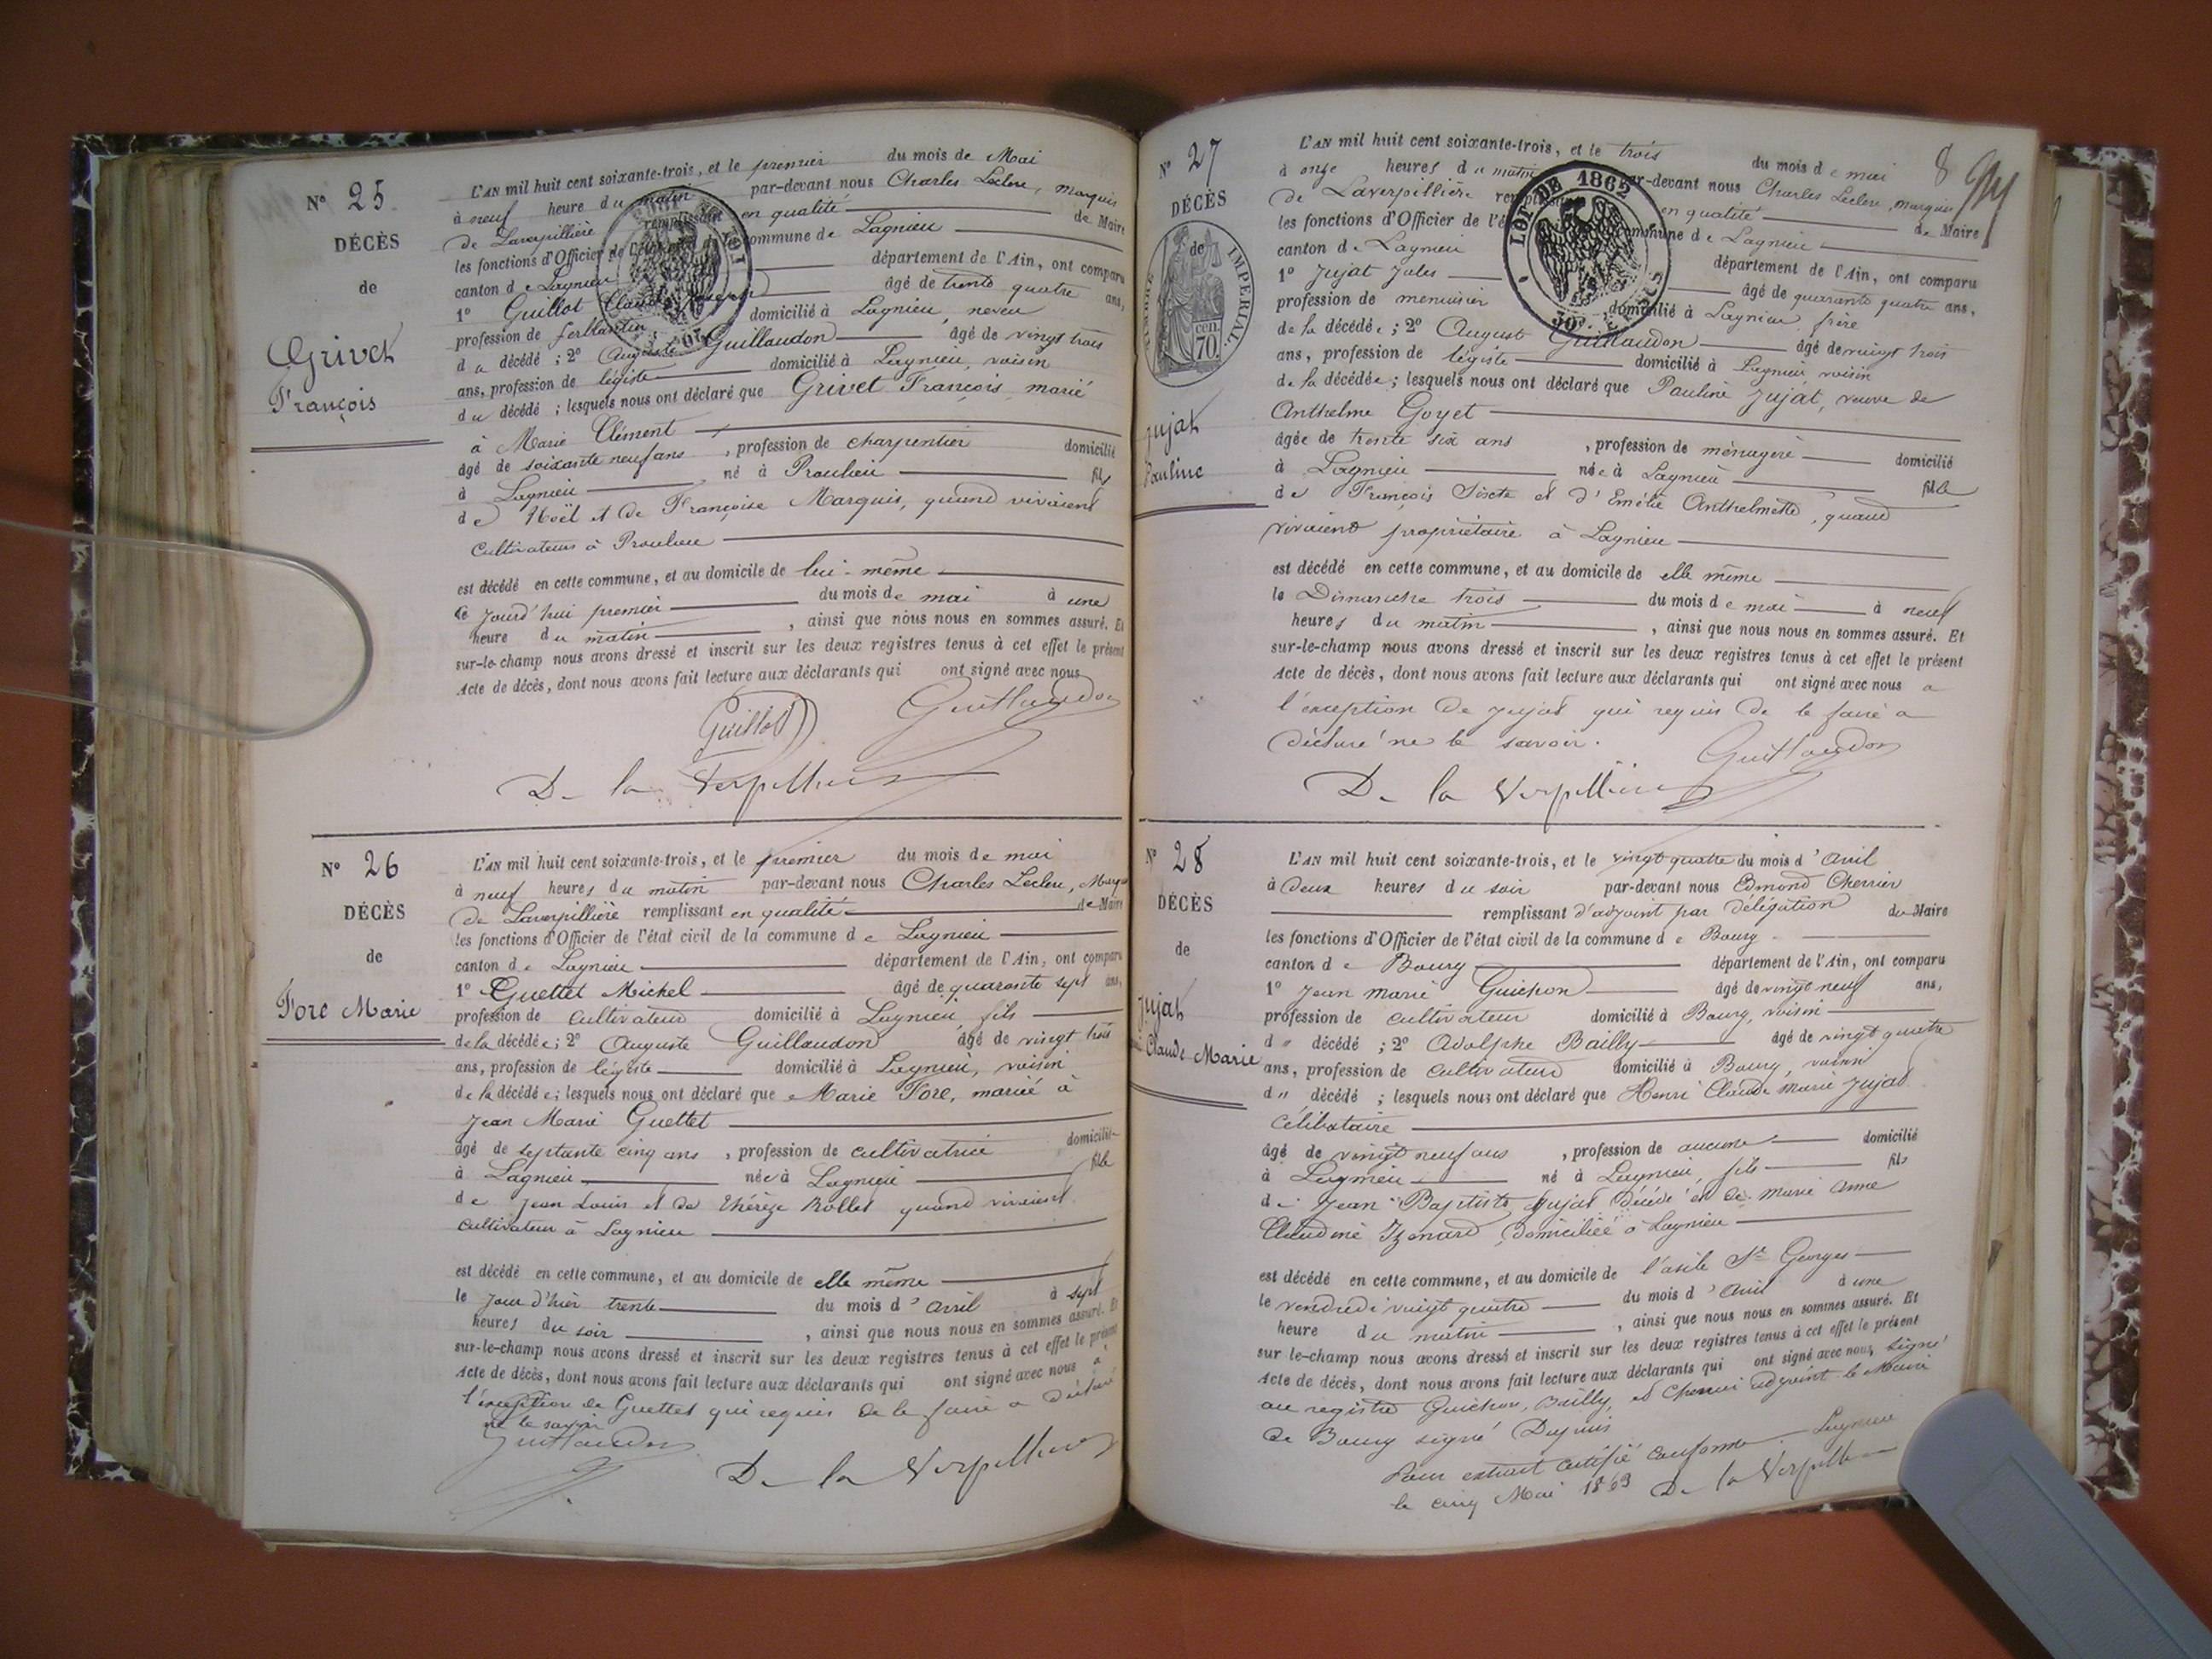 N° 25
DÉCÈS
de
Grivet
François
L'AN mil huit cent soixante-trois, et le premier du mois de Mai
à neuf heure du matin par-devant nous Charles Leclerc, marquis
de Laverpillière remplissant en qualité de Maire
les fonctions d'Officier de l'état civil de la commune de Lagnieu
canton de Lagnieu département de l'Ain, ont comparu
1° Guillot Claude âgé de trente quatre ans,
profession de ferblantier domicilié à Lagnieu, neveu
du décédé ; 2° Auguste Guillaudon âgé de vingt trois
ans, profession de légiste domicilié à Lagnieu, voisin
du décédé ; lesquels nous ont déclaré que Grivet François marié
à Marie Clément
âgé de soixante neuf ans , profession de charpentier domicilié
à Lagnieu né à Proulieu fils
de Noël et de Françoise Marquis, quand vivaient
cultivateurs à Proulieu
est décédé en cette commune, et au domicile de lui-même
ce jourd'hui premier du mois de mai à une
heure du matin , ainsi que nous nous en sommes assuré. Et
sur-le-champ nous avons dressé et inscrit sur les deux registres tenus à cet effet le présent
Acte de décès, dont nous avons fait lecture aux déclarants qui ont signé avec nous
Guillot Guillaudon
De la Verpillière
N° 26
DÉCÈS
de
Fore Marie
L'AN mil huit cent soixante-trois, et le premier du mois de mai
à neuf heures du matin par-devant nous Charles Leclerc, Marquis
de Laverpillière remplissant en qualité de Maire
les fonctions d'Officier de l'état civil de la commune de Lagnieu
canton de Lagnieu département de l'Ain, ont comparu
1° Guettet Michel âgé de quarante sept ans,
profession de cultivateur domicilié à Lagnieu, fils
de la décédée ; 2° Auguste Guillaudon âgé de vingt trois
ans, profession de légiste domicilié à Lagnieu, voisin
de la décédée ; lesquels nous ont déclaré que Marie Fore, mariée à
Jean Marie Guettet
âgé de septante cinq ans , profession de cultivatrice domicilié
à Lagnieu née à Lagnieu fille
de Jean Louis et de Thérèze Rollet quand vivaient
cultivateur à Lagnieu
est décédé en cette commune, et au domicile de elle même
le jour d'hier trente du mois d'avril à sept
heures du soir , ainsi que nous nous en sommes assuré. Et
sur-le-champ nous avons dressé et inscrit sur les deux registres tenus à cet effet le présent
Acte de décès, dont nous avons fait lecture aux déclarants qui ont signé avec nous à
l'exception de Guettet qui requis de le faire a déclaré
ne le savoir
Guillaudon
De la Verpillière
8
N° 27
DÉCÈS
de
TIMBRE IMPERIAL
70 cen
Jujat
Pauline
LOI DE 1862
L'AN mil huit cent soixante-trois, et le trois du mois de mai
à onze heures du matin par-devant nous Charles Leclerc, marquis
de Laverpillière remplissant en qualité de Maire
les fonctions d'Officier de l'état civil de la commune de Lagnieu
canton de Lagnieu département de l'Ain, ont comparu
1° Jujat Jules âgé de quarante quatre ans,
profession de menuisier domicilié à Lagnieu frère
de la décédée ; 2° August Guillaudon âgé de vingt trois
ans, profession de légiste domicilié à Lagnieu voisin
de la décédée ; lesquels nous ont déclaré que Pauline Jujat, veuve de
Anthelme Goyet
âgée de trente six ans , profession de ménagère domicilié
à Lagnieu née à Lagnieu fille
de François Sixte et d'Emélie Anthelmette, quand
vivaient propriétaire à Lagnieu
est décédé en cette commune, et au domicile de elle même
le Dimanche trois du mois de mai à neuf
heures du matin , ainsi que nous nous en sommes assuré. Et
sur-le-champ nous avons dressé et inscrit sur les deux registres tenus à cet effet le présent
Acte de décès, dont nous avons fait lecture aux déclarants qui ont signé avec nous a
l'exception de Jujat qui requis de le faire a
déclaré ne le savoir.
Guillaudon
De la Verpillière
N° 28
DÉCÈS
de
Jujat
Claude Marie
L'AN mil huit cent soixante-trois, et le vingt quatre du mois d'avril
à deux heures du soir par-devant nous Edmond Cherrier
remplissant d'adjoint par délégation du Maire
les fonctions d'Officier de l'état civil de la commune de Bourg
canton de Bourg département de l'Ain, ont comparu
1° Jean Marie Guichon âgé de vingt neuf ans,
profession de cultivateur domicilié à Bourg, voisin
d" décédé ; 2° Adolphe Bailly âgé de vingt quatre
ans, profession de cultivateur domicilié à Bourg, voisin
d" décédé ; lesquels nous ont déclaré que Henri Claude Marie Jujat
célibataire
âgé de vingt neuf ans , profession de aucune domicilié
à Lagnieu né à Lagnieu, fils fils
de Jean Baptiste Jujat décédé et de Marie Anne
Claudine Izenard, domiciliée à Lagnieu
est décédé en cette commune, et au domicile de l'asile St Georges
le vendredi vingt quatre du mois d'avril à une
heure du matin , ainsi que nous nous en sommes assuré. Et
sur le-champ nous avons dressé et inscrit sur les deux registres tenus à cet effet le présent
Acte de décès, dont nous avons fait lecture aux déclarants qui ont signé avec nous, signé
au registre Guichon, Bailly, et Cherrier adjoint le Maire
de Bourg signé Dupuis
Pour extrait certifié conforme Lagnieu
le cinq Mai 1863 De la Verpillière